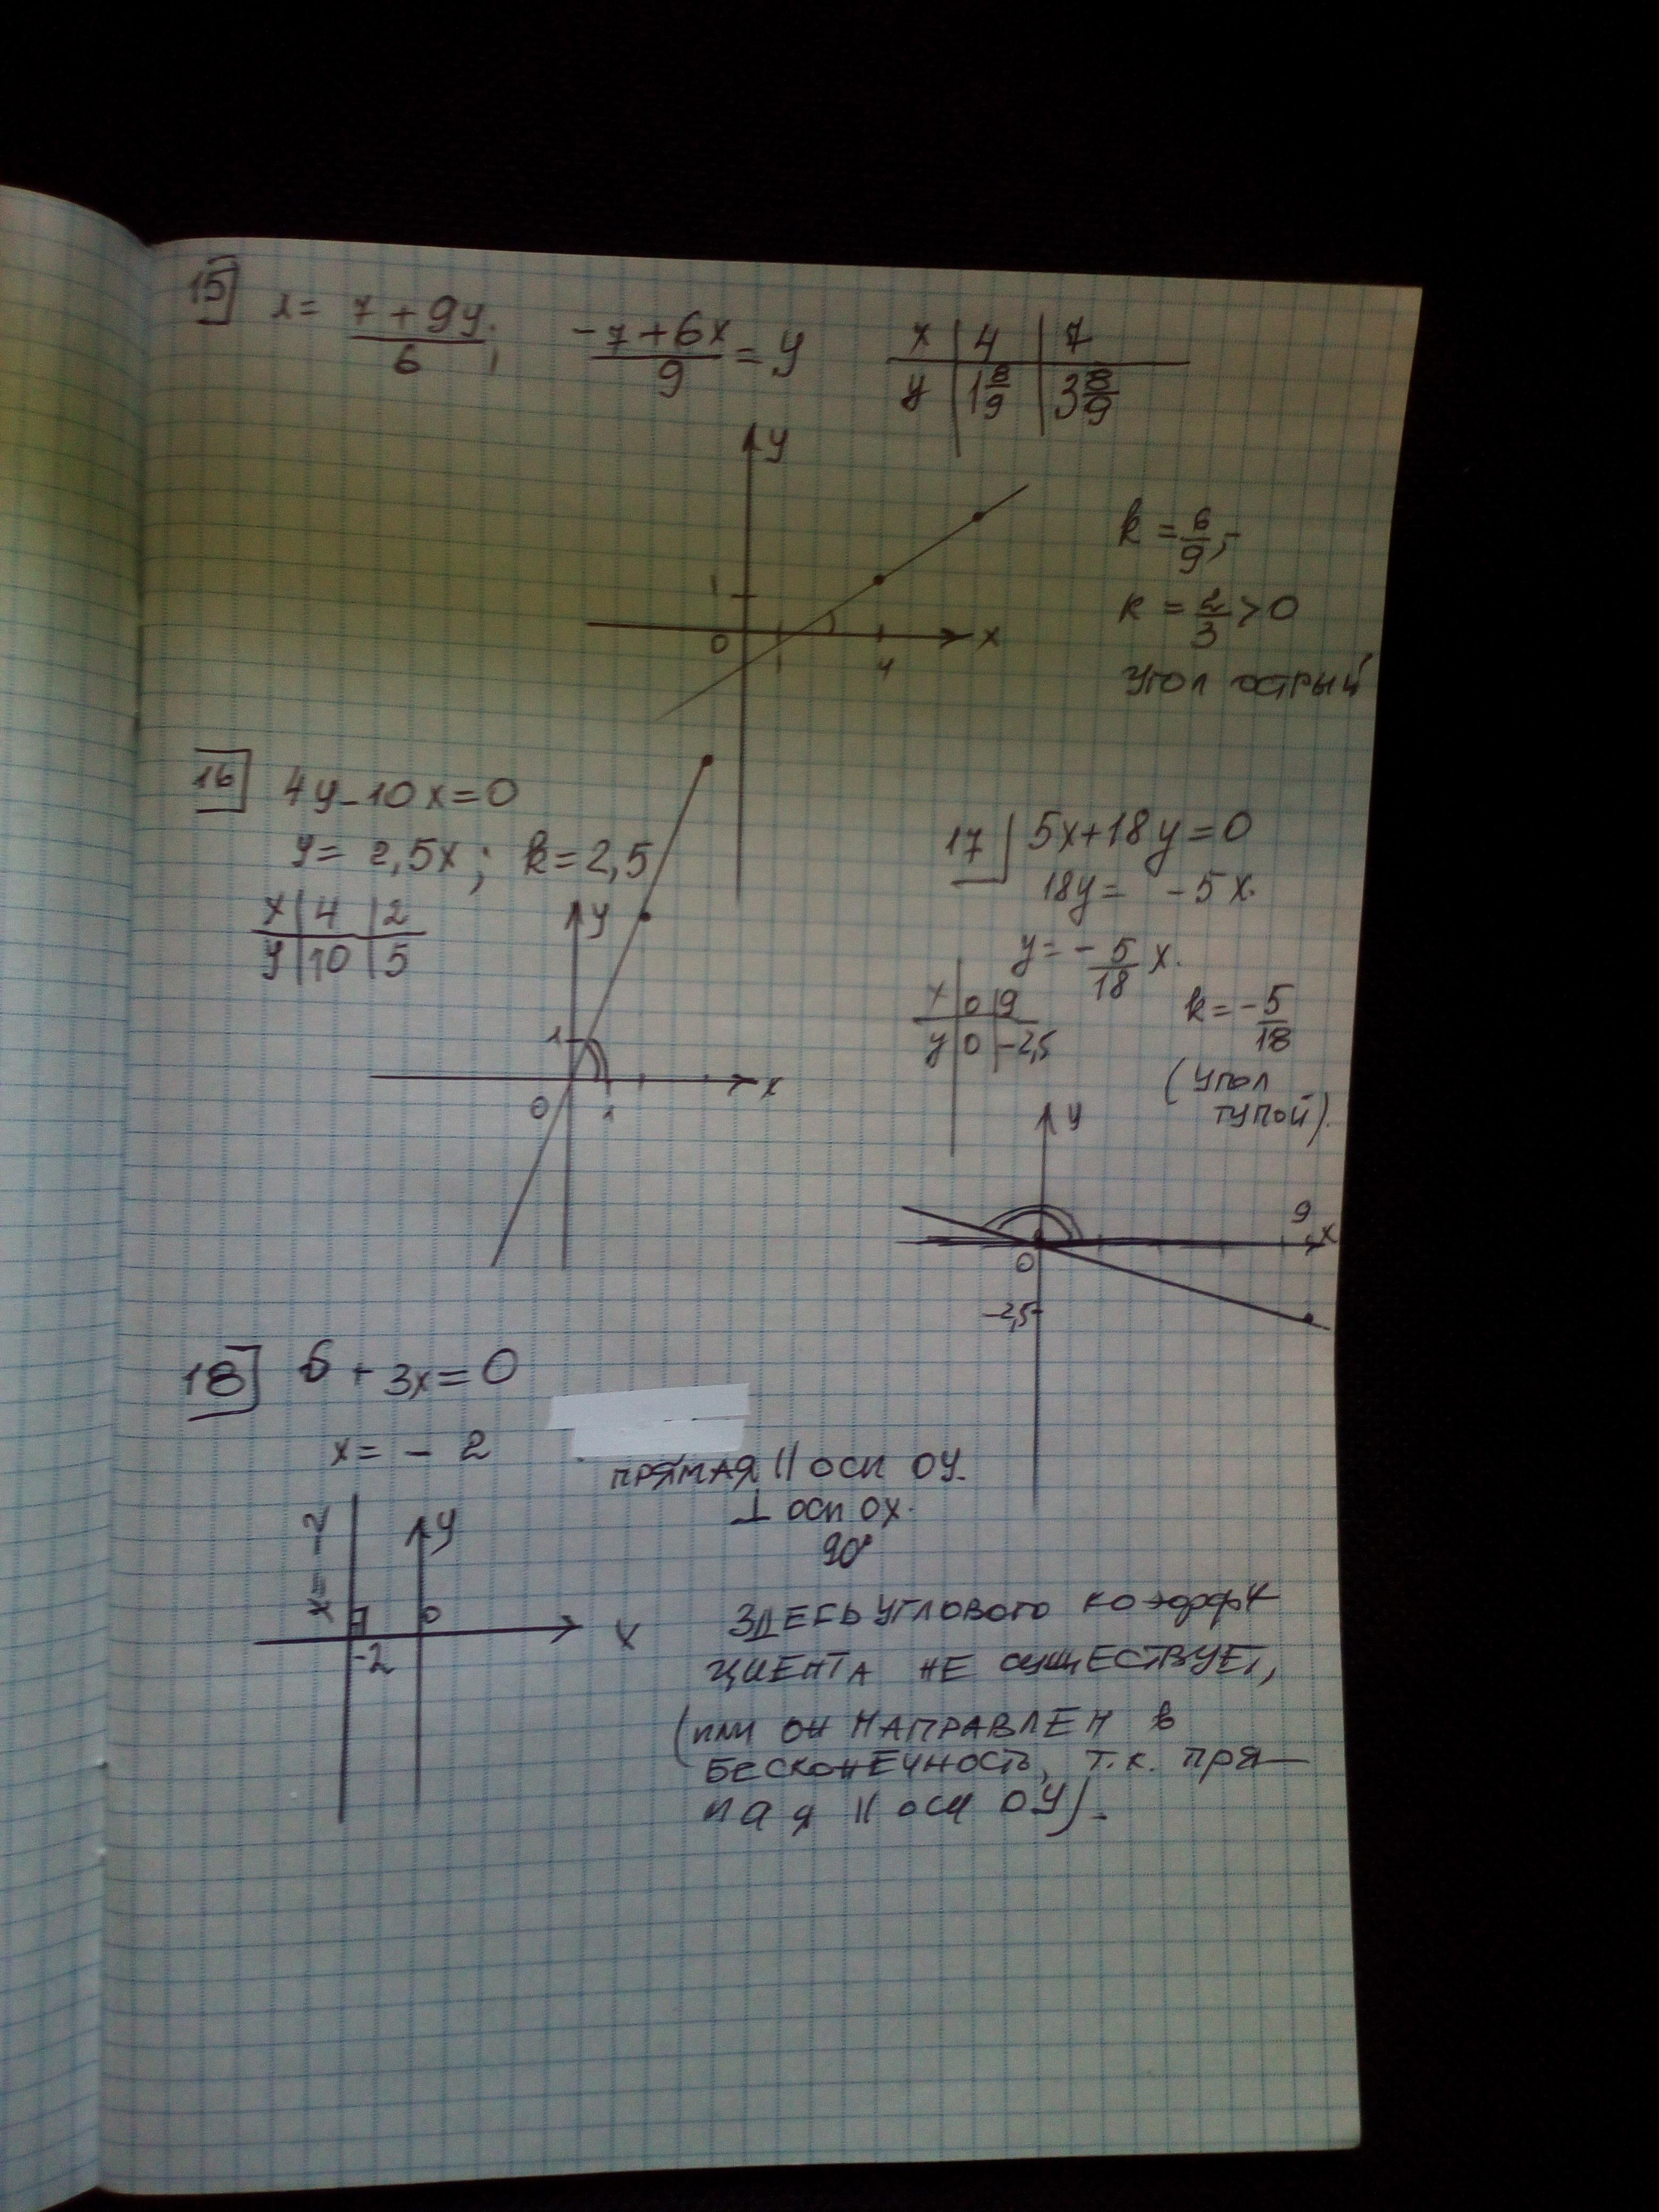 15] x = (7 + 9y)/6; (-7 + 6x)/9 = y
x | 4 | 7
y | 1 8/9 | 3 8/9
y
k = 6/9;
1
k = 2/3 > 0
0 1 4 x
угол острый
16] 4y - 10x = 0
y = 2,5x; k = 2,5
x | 4 | 2
y | 10 | 5
y
1
0 1 x
17] 5x + 18y = 0
18y = - 5x.
y = - 5/18 x.
x | 0 | 9
y | 0 | -2,5
k = - 5/18
(угол
тупой).
y
9
x
0
-2,5
18] 6 + 3x = 0
x = - 2
прямая || оси OY.
⊥ оси OX.
90°
x = -2
y
0
-2
x
здесь углового коэффи
циента не существует,
(или он направлен в
бесконечность, т.к. пря-
мая || оси OY).